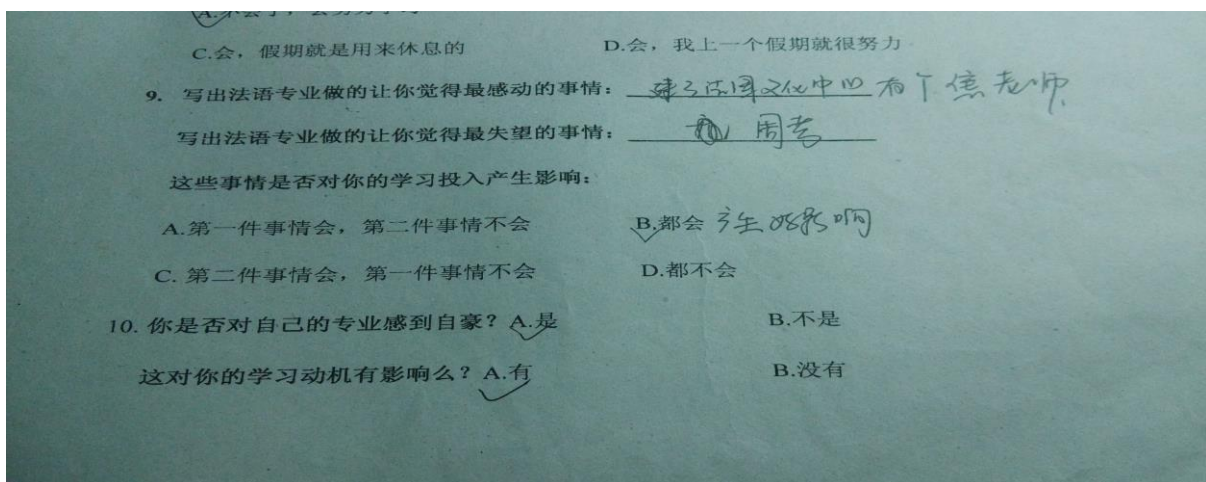 C.会，假期就是用来休息的 D.会，我上一个假期就很努力
9. 写出法语专业做的让你觉得最感动的事情：建了法国文化中心 有个焦老师
写出法语专业做的让你觉得最失望的事情：周考
这些事情是否对你的学习投入产生影响：
A.第一件事情会，第二件事情不会 B.都会 产生 影响
C. 第二件事情会，第一件事情不会 D.都不会
10. 你是否对自己的专业感到自豪？A.是 B.不是
这对你的学习动机有影响么？A.有 B.没有